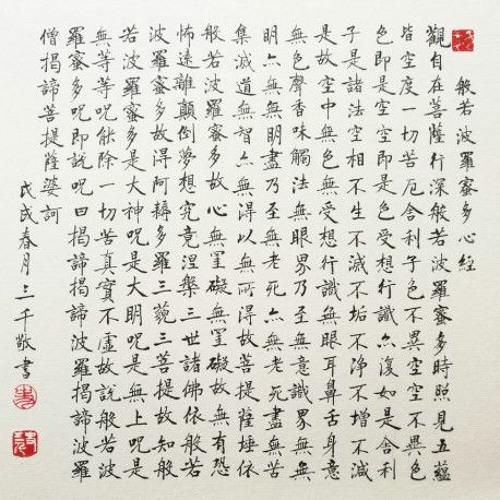 般若波羅蜜多心經
觀自在菩薩行深般若波羅蜜多時照見五蘊
皆空度一切苦厄舍利子色不異空空不異色
色即是空空即是色受想行識亦復如是舍利
子是諸法空相不生不滅不垢不淨不增不減
是故空中無色無受想行識無眼耳鼻舌身意
無色聲香味觸法無眼界乃至無意識界無無
明亦無無明盡乃至無老死亦無老死盡無苦
集滅道無智亦無得以無所得故菩提薩埵依
般若波羅蜜多故心無罣礙無罣礙故無有恐
怖遠離顛倒夢想究竟涅槃三世諸佛依般若
波羅蜜多故得阿耨多羅三藐三菩提故知般
若波羅蜜多是大神呪是大明呪是無上呪是
無等等呪能除一切苦真實不虛故說般若波
羅蜜多呪即說呪曰揭諦揭諦波羅揭諦波羅
僧揭諦菩提薩婆訶
戊戌春月三千敬書